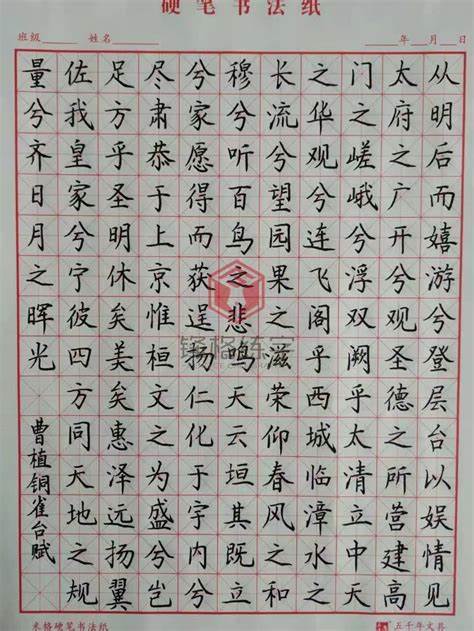 硬笔书法纸
班级 姓名 年 月 日
从明后而嬉游兮登层台以娱情见
太府之广开兮观圣德之所营建高
门之嵯峨兮浮双阙乎太清立中天
之华观兮连飞阁乎西城临漳水之
长流兮望园果之滋荣仰春风之和
穆兮听百鸟之悲鸣天云垣其既立
兮家愿得而获逞扬仁化于宇内兮
尽肃恭于上京惟桓文之为盛兮岂
足方乎圣明休矣美矣惠泽远扬翼
佐我皇家兮宁彼四方同天地之规
量兮齐日月之晖光
曹植铜雀台赋
米格硬笔书法纸
五千年文具